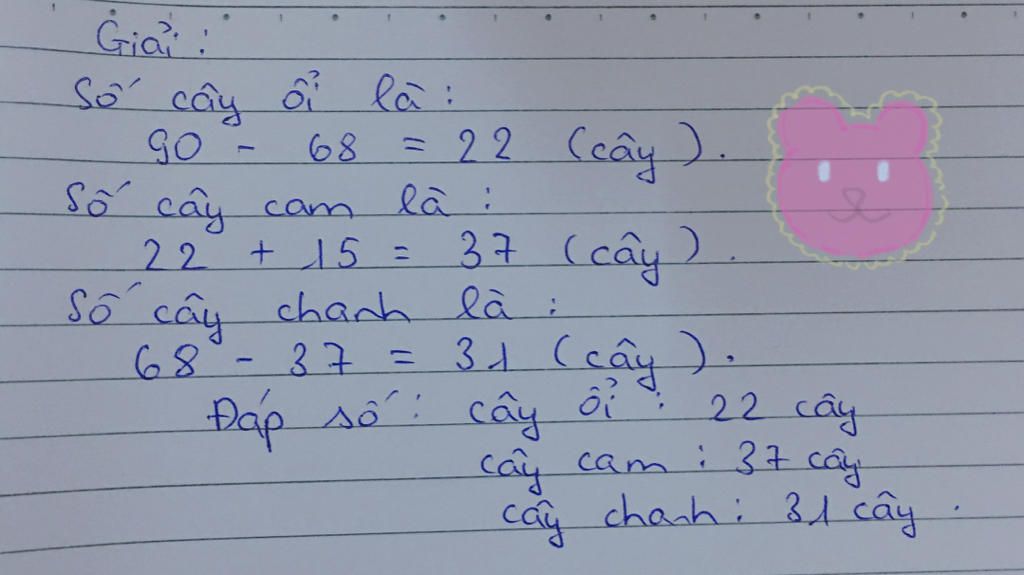 Giải :
Số cây ổi là :
90 - 68 = 22 (cây).
Số cây cam là :
22 + 15 = 37 (cây).
Số cây chanh là :
68 - 37 = 31 (cây).
Đáp số : cây ổi : 22 cây
cây cam : 37 cây
cây chanh : 31 cây.